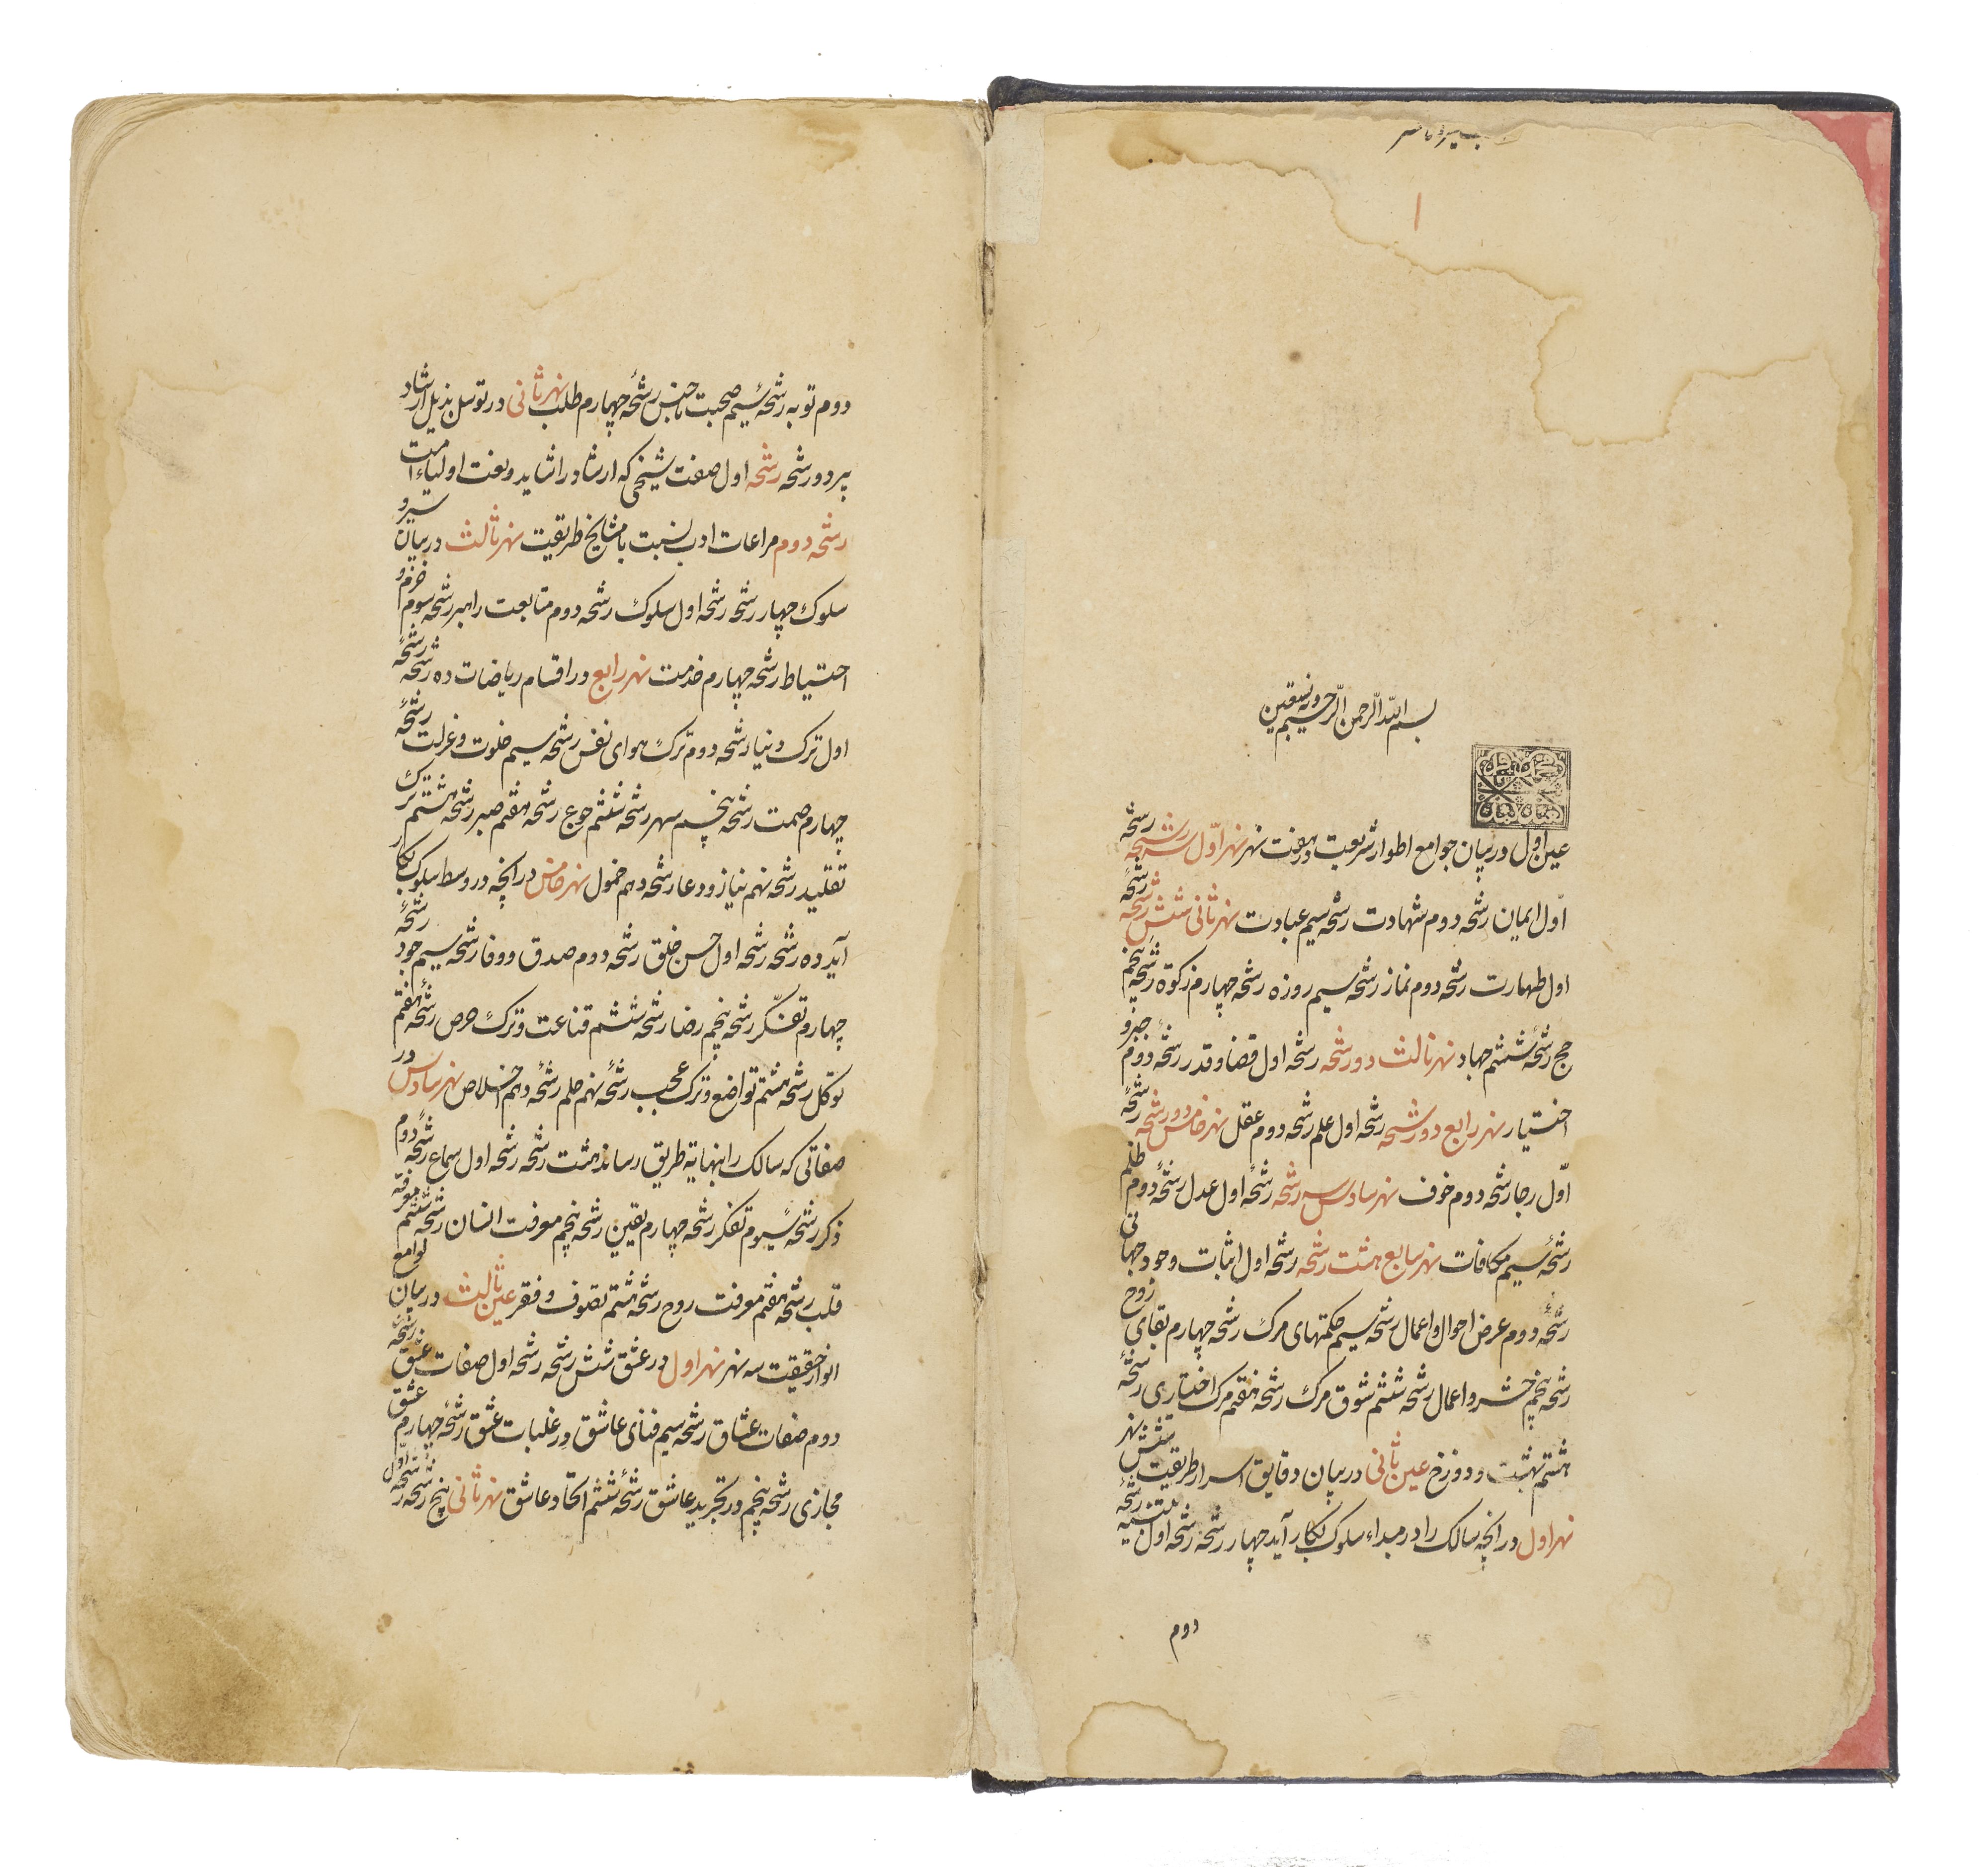 بسم الله الرحمن الرحیم وبه نستعین
عین اول در بیان جوامع اطوار شریعت در هفت نهر نهر اول سه رشحه رشحه
اول ایمان رشحه دوم شهادت رشحه سیم عبادت نهر ثانی شش رشحه رشحهٔ
اول طهارت رشحه دوم نماز رشحه سیم روزه رشحه چهارم زکوة رشحه پنجم
حج رشحهٔ ششم جهاد نهر ثالث دو رشحه رشحه اول قضا و قدر رشحه دوم جبر و
اختیار نهر رابع دو رشحه رشحه اول علم رشحه دوم عقل نهر خامس دو رشحه رشحهٔ
اول رجا رشحه دوم خوف نهر سادس سه رشحه رشحهٔ اول عدل رشحهٔ دوم ظلم
رشحهٔ سیم مکافات نهر سابع هشت رشحه رشحه اول اثبات وجود جهانی
رشحهٔ دوم عرض احوال و اعمال رشحه سیم حکمتهای مرک رشحه چهارم بقای روح
رشحه پنجم حشر و اعمال رشحه ششم شوق مرک رشحه هفتم مرک اختیاری رشحهٔ
هشتم بهشت و دوزخ عین ثانی در بیان دقایق اسرار طریقت شش نهر
نهر اول در انچه سالک را در مبداء سلوک بکار آید چهار رشحه رشحه اول تنبیه رشحهٔ
دوم
دوم توبه رشحهٔ سیم صحبت ناجنس رشحهٔ چهارم طلب نهر ثانی در توسل بذیل ارشاد
پیر دو رشحه رشحه اول صفت شیخی که ارشاد را شاید و نعت اولیاء امت
رشحه دوم مراعات ادب نسبت با مشایخ طریقت نهر ثالث در بیان سیر و
سلوک چهار رشحه رشحه اول سلوک رشحه دوم متابعت راهبر رشحه سوم حزم و
احتیاط رشحه چهارم خدمت نهر رابع در اقسام ریاضات ده رشحه رشحهٔ
اول ترک دنیا رشحه دوم ترک هوای نفس رشحه سیم خلوت و عزلت رشحهٔ
چهارم صمت رشحه پنجم سهر رشحه ششم جوع رشحه هفتم صبر رشحه هشتم ترک
تقلید رشحه نهم نیاز و دعا رشحه دهم خمول نهر خامس در انچه در وسط سلوک بکار
آید ده رشحه رشحه اول حسن خلق رشحه دوم صدق و وفا رشحه سیم جود رشحهٔ
چهارم تفکر رشحه پنجم رضا رشحه ششم قناعت و ترک حرص رشحهٔ هفتم
توکل رشحه هشتم تواضع و ترک عجب رشحهٔ نهم حلم رشحهٔ دهم اخلاص نهر سادس در
صفاتی که سالک را بنهایة طریق رساند هشت رشحه رشحه اول سماع رشحهٔ دوم
ذکر رشحهٔ سیوم تفکر رشحه چهارم یقین رشحه پنجم معرفت انسان رشحه ششم معرفة
قلب رشحه هفتم معرفت روح رشحه هشتم تصوف و فقر عین ثالث در بیان لوامع
انوار حقیقت سه نهر نهر اول در عشق شش رشحه رشحه اول صفات عشق رشحهٔ
دوم صفات عشاق رشحه سیم فنای عاشق در غلبات عشق رشحهٔ چهارم عشق
مجازی رشحه پنجم در تجرید عاشق رشحهٔ ششم اتحاد عاشق نهر ثانی پنج رشحه رشحهٔ اول